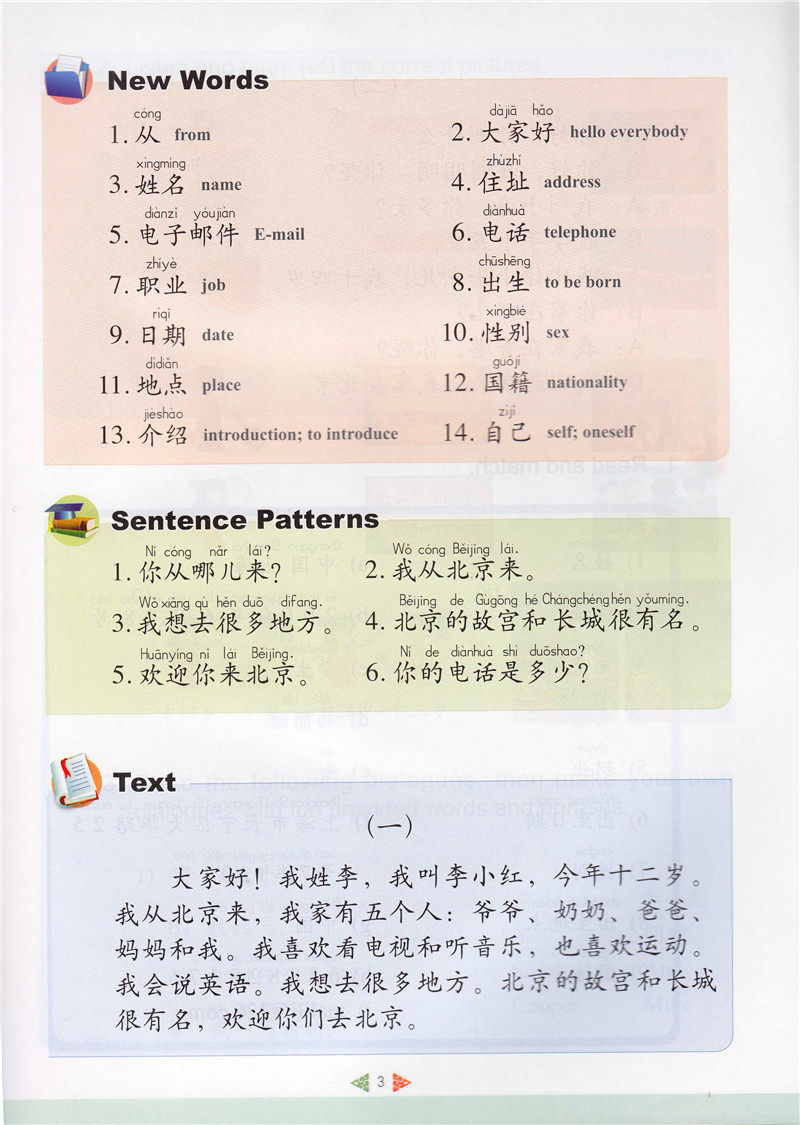 New Words
cóng dàjiā hǎo
1. 从 from 2. 大家好 hello everybody
xìngmíng zhùzhǐ
3. 姓名 name 4. 住址 address
diànzǐ yóujiàn diànhuà
5. 电子邮件 E-mail 6. 电话 telephone
zhíyè chūshēng
7. 职业 job 8. 出生 to be born
rìqī xìngbié
9. 日期 date 10. 性别 sex
dìdiǎn guójí
11. 地点 place 12. 国籍 nationality
jièshào zìjǐ
13. 介绍 introduction; to introduce 14. 自己 self; oneself
Sentence Patterns
Nǐ cóng nǎr lái? Wǒ cóng Běijīng lái.
1. 你从哪儿来? 2. 我从北京来。
Wǒ xiǎng qù hěn duō dìfang. Běijīng de Gùgōng hé Chángchéng hěn yǒumíng.
3. 我想去很多地方。 4. 北京的故宫和长城很有名。
Huānyíng nǐ lái Běijīng. Nǐ de diànhuà shì duōshao?
5. 欢迎你来北京。 6. 你的电话是多少?
Text
(一)
大家好！我姓李，我叫李小红，今年十二岁。
我从北京来，我家有五个人：爷爷、奶奶、爸爸、
妈妈和我。我喜欢看电视和听音乐，也喜欢运动。
我会说英语。我想去很多地方。北京的故宫和长城
很有名，欢迎你们去北京。
3